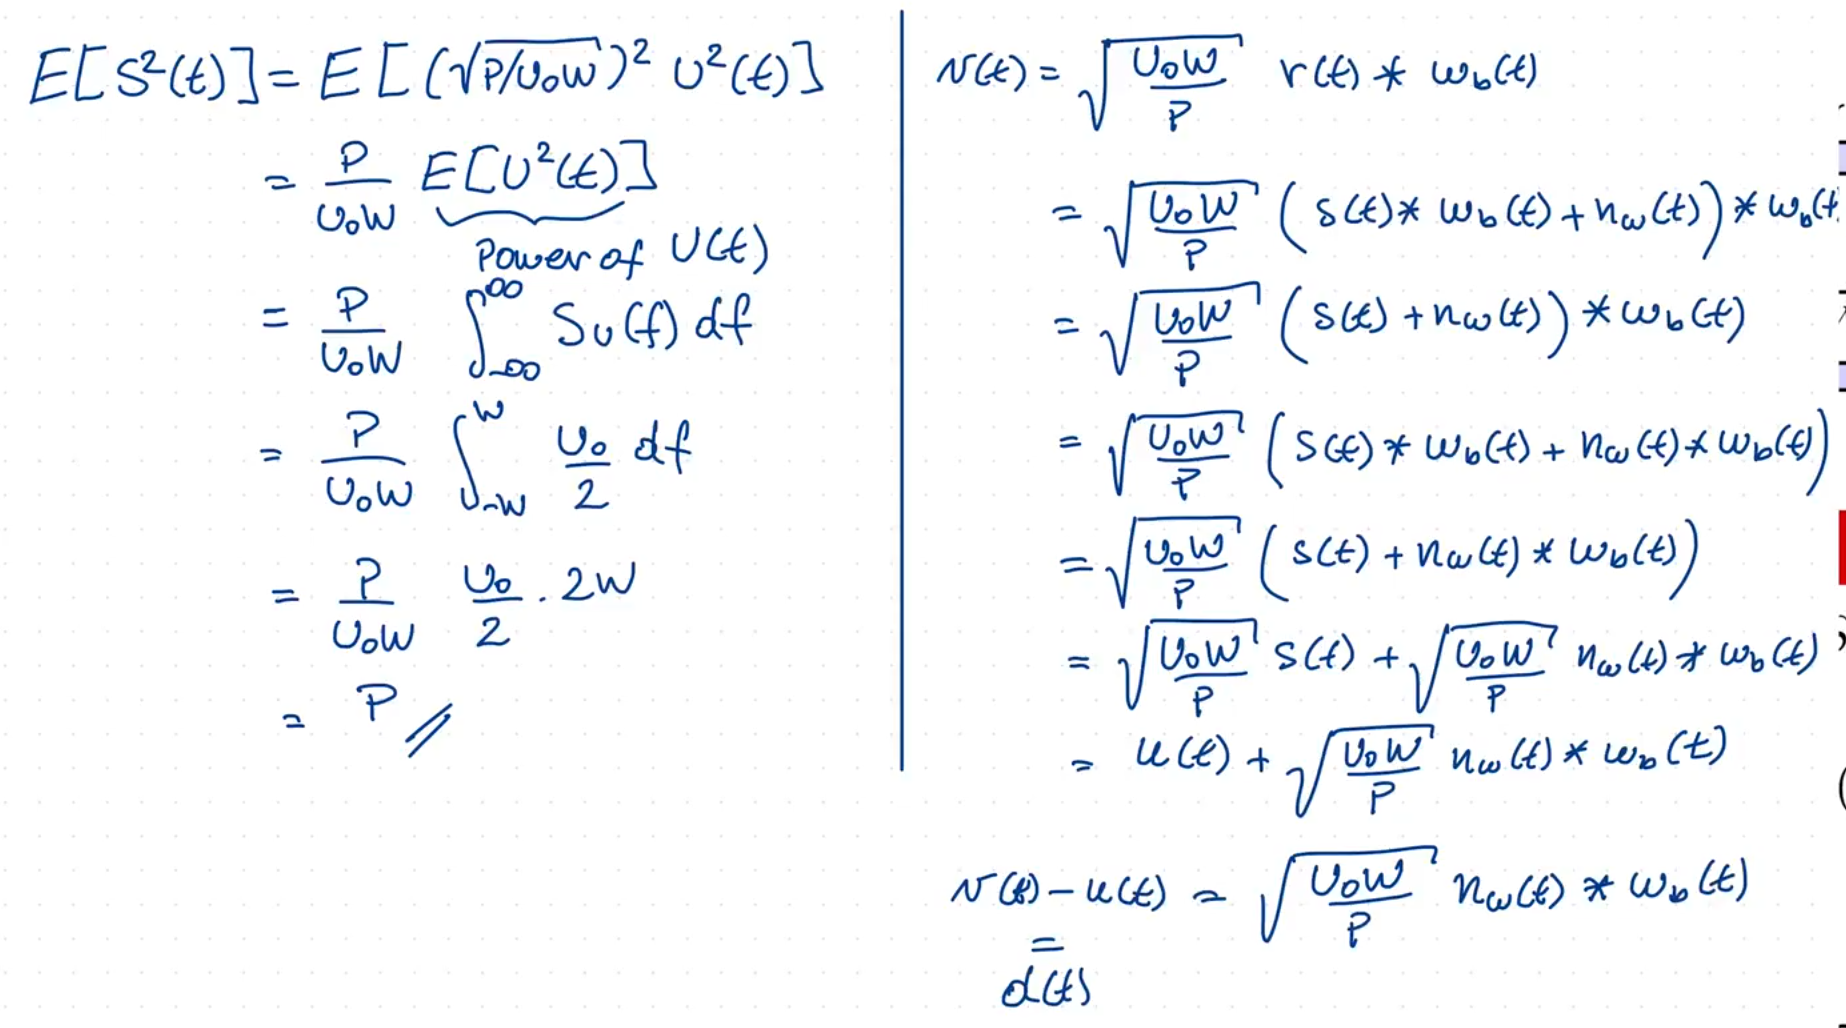 E[S²(t)] = E[(√P/U₀W)² U²(t)]
= P/U₀W E[U²(t)]
Power of U(t)
= P/U₀W ∫_{-∞}^{∞} S_U(f) df
= P/U₀W ∫_{-W}^{W} U₀/2 df
= P/U₀W U₀/2 . 2W
= P //
v(t) = √(U₀W/P) r(t) * w_b(t)
= √(U₀W/P) (s(t) * w_b(t) + n_w(t)) * w_b(t
= √(U₀W/P) (s(t) + n_w(t)) * w_b(t)
= √(U₀W/P) (s(t) * w_b(t) + n_w(t) * w_b(t))
= √(U₀W/P) (s(t) + n_w(t) * w_b(t))
= √(U₀W/P) s(t) + √(U₀W/P) n_w(t) * w_b(t)
= u(t) + √(U₀W/P) n_w(t) * w_b(t)
v(t) - u(t) = √(U₀W/P) n_w(t) * w_b(t)
=
d(t)